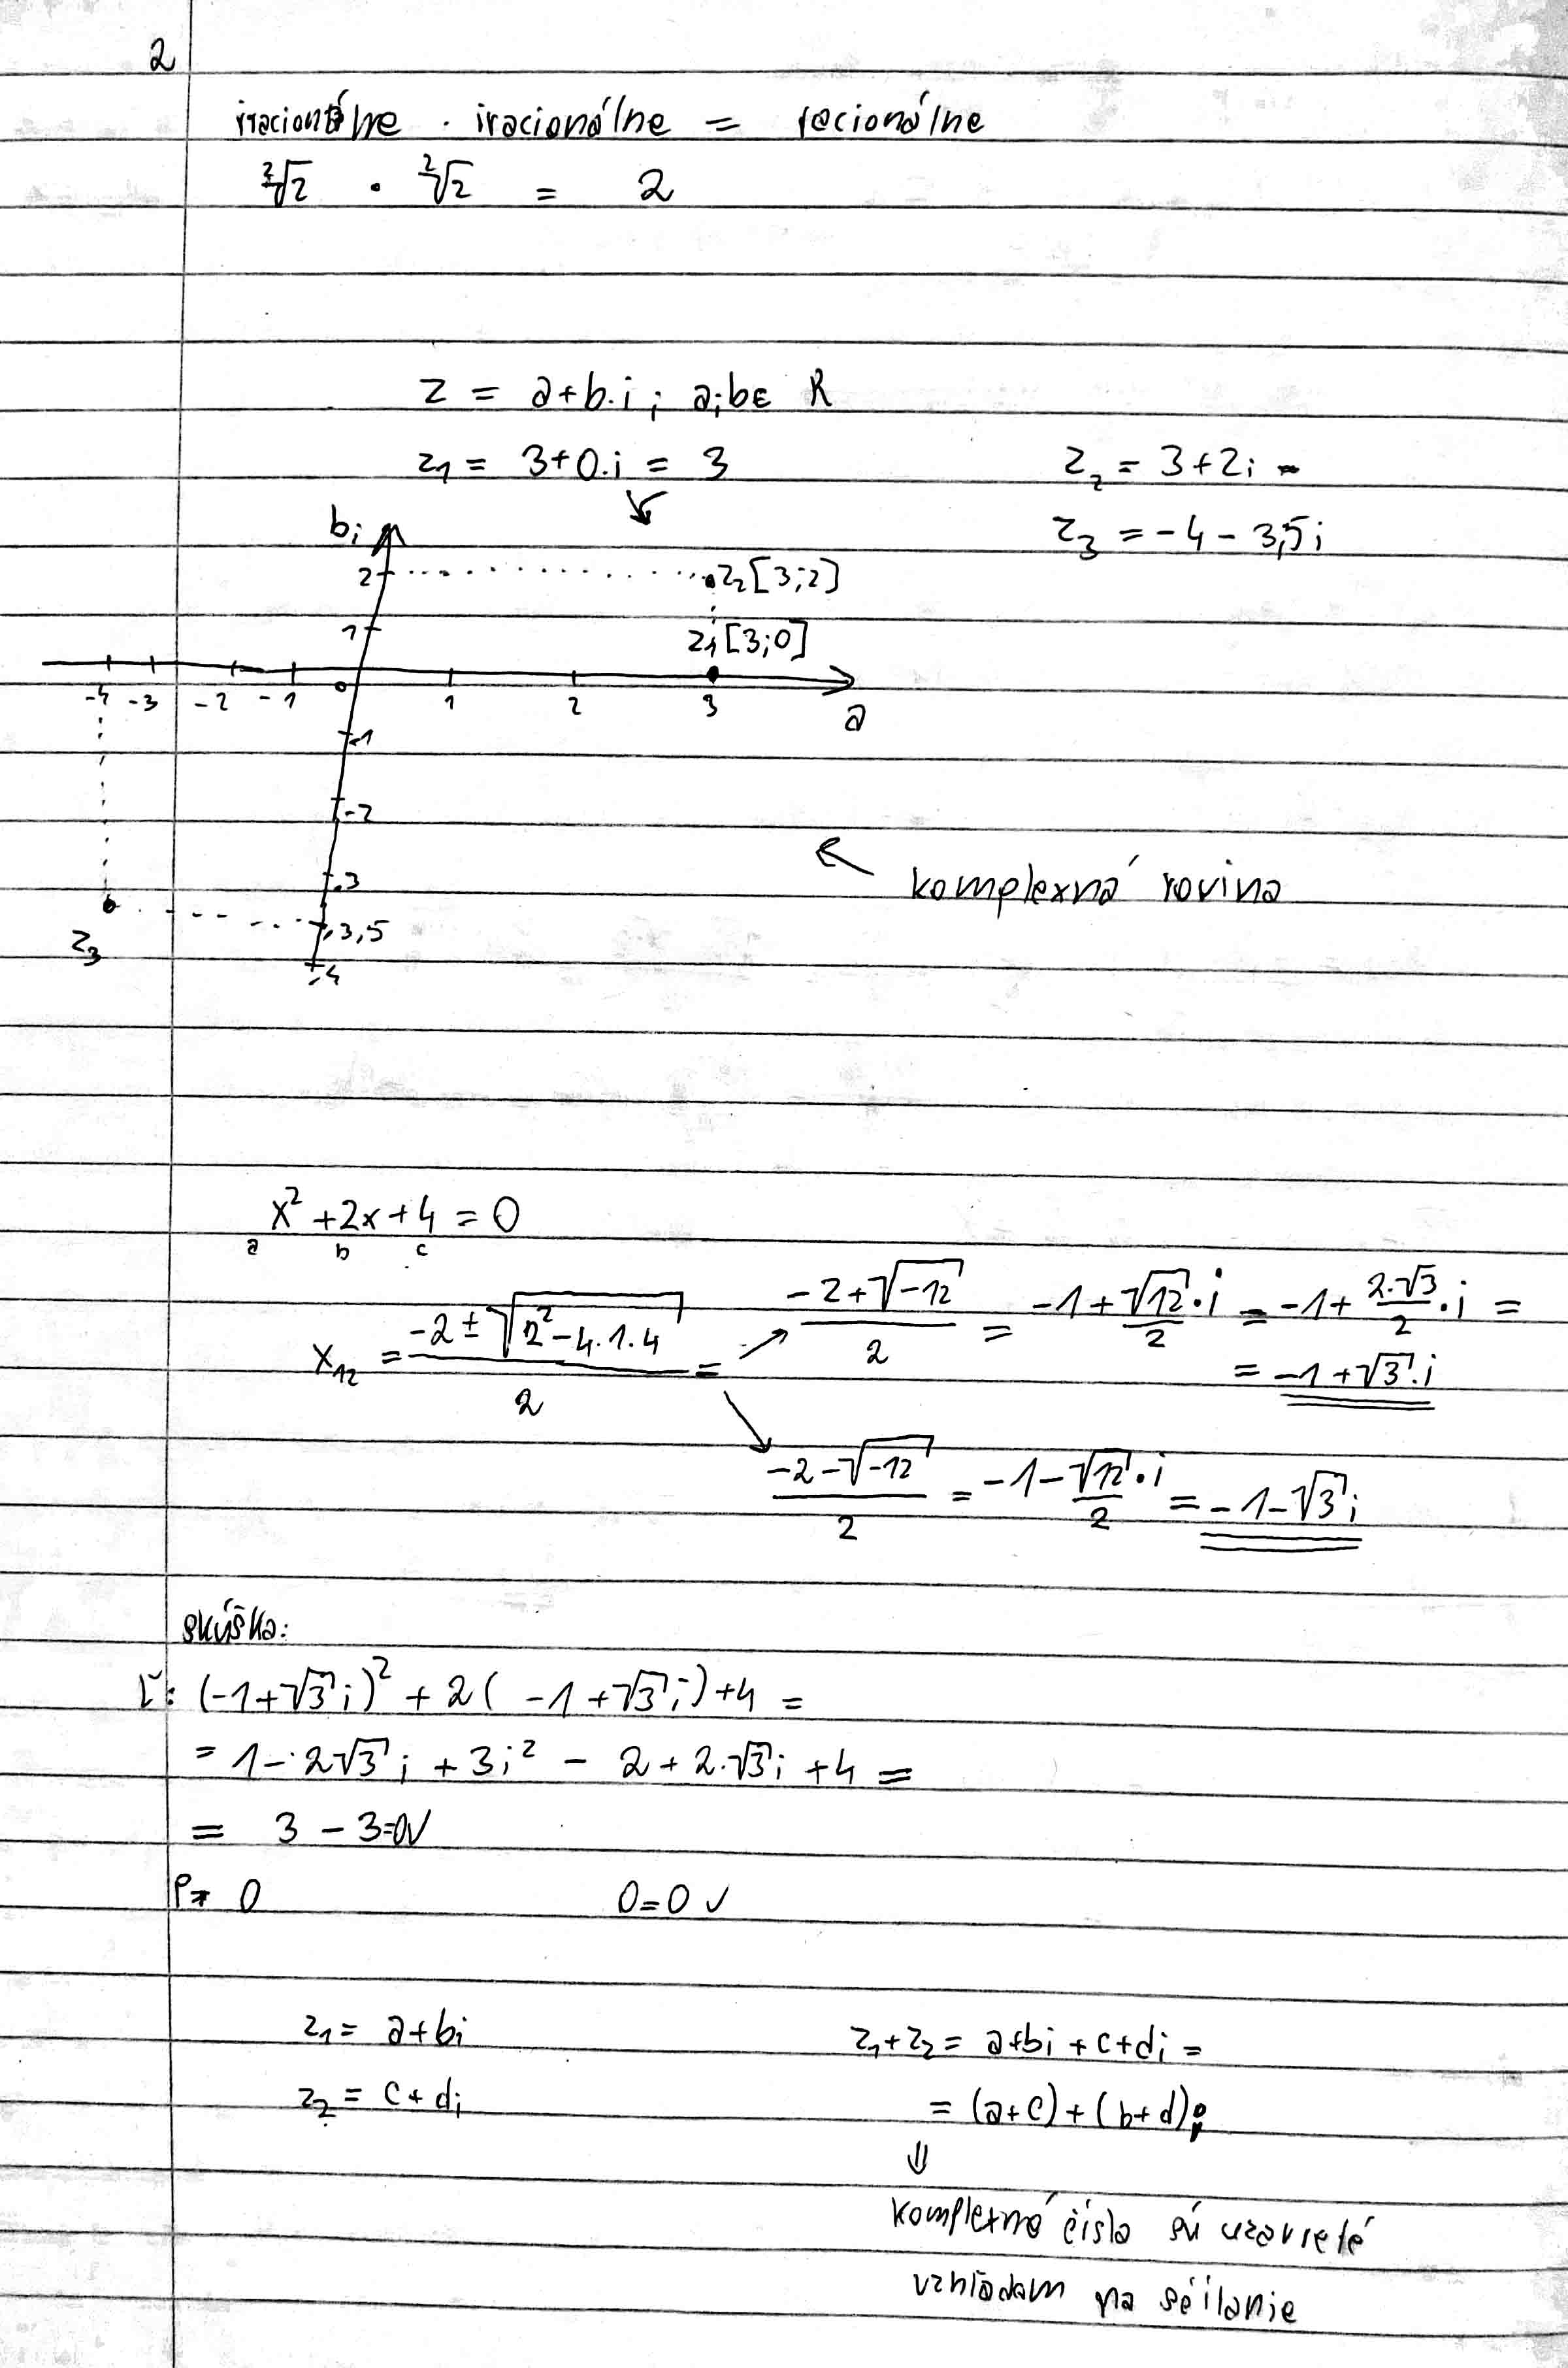 2
iracionálne · iracionálne = racionálne
²√2 · ²√2 = 2
z = a+b.i ; a;b∈ R
z₁ = 3+0.i = 3
z₂ = 3+2i
z₃ = -4 - 3,5i
bi
2 z₂[3;2]
1 z₁[3;0]
-4 -3 -2 -1 0 1 2 3 a
-1
-2
-3
← komplexná rovina
z₃ -3,5
-4
x² +2x+4 = 0
a b c
x₁₂ = (-2 ± √(2²-4.1.4))/2 = ↗ (-2+√-12)/2 = -1+√12/2·i = -1+ 2.√3/2·i =
= -1+√3.i
↘ (-2-√-12)/2 = -1-√12/2·i = -1-√3i
skúška:
Ľ: (-1+√3i)² + 2( -1+√3i)+4 =
= 1-2√3i + 3i² - 2 + 2.√3i +4 =
= 3 - 3=0√
P= 0 0=0 √
z₁ = a+bi
z₂ = c+di
z₁+z₂ = a+bi +c+di =
= (a+c)+(b+d)i
⇓
komplexné čísla sú uzavreté
vzhľadom na sčítanie